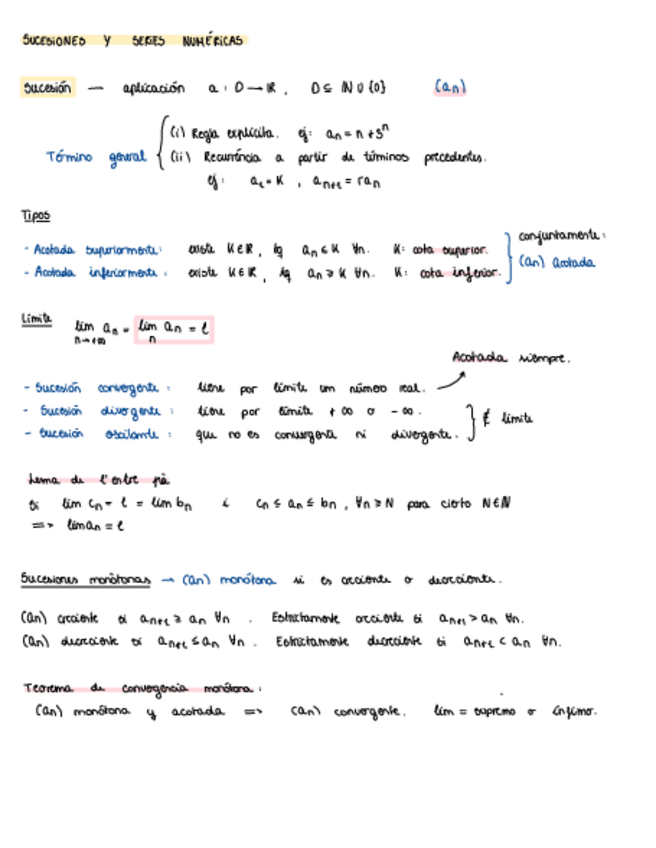 SUCESIONES Y SERIES NUMÉRICAS
Sucesión — aplicación a : D → ℝ, D ⊆ ℕ ∪ {0} (an)
Término general { (i) Regla explícita. ej: an = n + 3ⁿ
(ii) Recurrència a partir de términos precedentes.
ej: a₁ = K , an+1 = ran
Tipos
- Acotada superiormente: existe K∈ℝ, tq an ≤ K ∀n. K: cota superior.
- Acotada inferiormente: existe K∈ℝ, tq an ≥ K ∀n. K: cota inferior.
} conjuntamente:
(an) Acotada
Límite
lim n→+∞ an = lim n an = l
Acotada siempre.
- Sucesión convergente: tiene por límite um número real.
- Sucesión divergente: tiene por límite +∞ o -∞.
- Sucesión oscilante: que no es convergente ni divergente. } ∄ límite
Lema de l'entre pà
Si lim cn = l = lim bn i cn ≤ an ≤ bn, ∀n ≥ N para cierto N∈ℕ
=> lim an = l
Sucesiones monòtonas → (an) monótona si es creciente o decreciente.
(an) creciente si an+1 ≥ an ∀n. Estrictamente creciente si an+1 > an ∀n.
(an) decreciente si an+1 ≤ an ∀n. Estrictamente decreciente si an+1 < an ∀n.
Teorema de convergencia monótona:
(an) monótona y acotada => (an) convergente. lim = supremo o ínfimo.